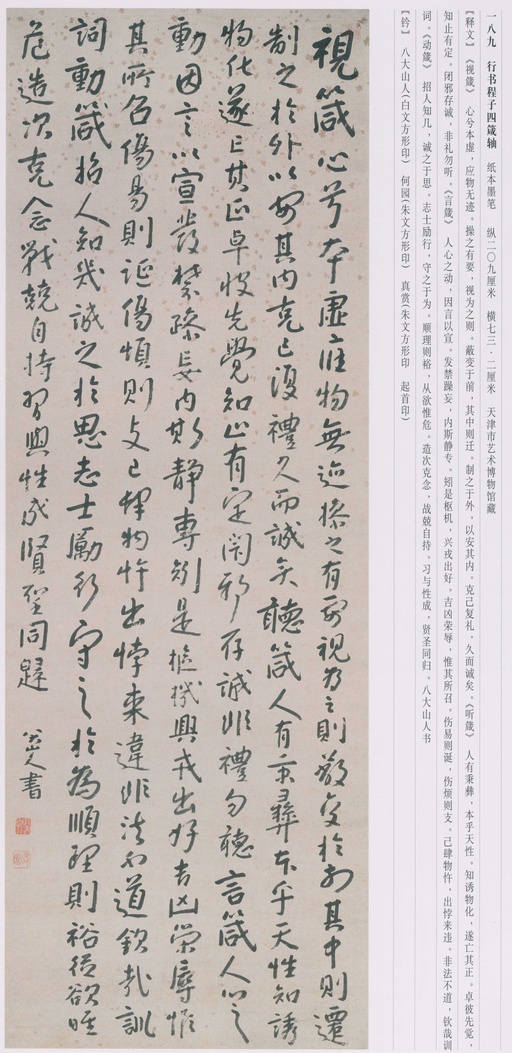 一八九　行书程子四箴轴　纸本墨笔　纵二〇九厘米　横七三·二厘米　天津市艺术博物馆藏
【释文】《视箴》　心兮本虚，应物无迹。操之有要，视为之则。蔽变于前，其中则迁。制之于外，以安其内。克己复礼，久而诚矣。《听箴》　人有秉彝，本乎天性。知诱物化，遂亡其正。卓彼先觉，
知止有定。闭邪存诚，非礼勿听。《言箴》　人心之动，因言以宣。发禁躁妄，内斯静专。矧是枢机，兴戎出好。吉凶荣辱，惟其所召。伤易则诞，伤烦则支。己肆物忤，出悖来违。非法不道，钦哉训
词。《动箴》　招人知几，诚之于思。志士励行，守之于为。顺理则裕，从欲惟危。造次克念，战兢自持。习与性成，贤圣同归。八大山人书
【钤】　八大山人（白文方形印）　何园（朱文方形印）　真赏（朱文方形印　起首印）
視箴心兮本虛應物無迹操之有要視為之則蔽變於前其中則遷
制之於外以安其內克己復禮久而誠矣聽箴人有秉彝本乎天性知誘
物化遂亡其正卓彼先覺知止有定閉邪存誠非禮勿聽言箴人心之
動因言以宣發禁躁妄內斯靜專矧是樞機興戎出好吉凶榮辱惟
其所召傷易則誕傷煩則支己肆物忤出悖來違非法不道欽哉訓
詞動箴招人知幾誠之於思志士勵行守之於為順理則裕從欲惟
危造次克念戰兢自持習與性成賢聖同歸
八大山人書